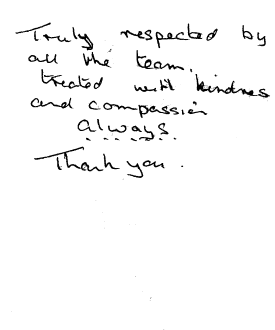 Truly respected by
all the team.
treated with kindness
and compassion
always
Thank you.